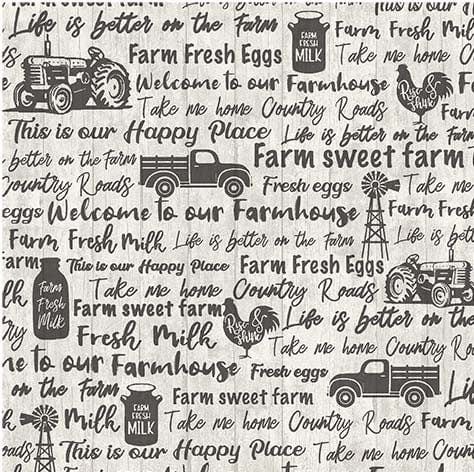 Life is better on the Farm
Farm Fresh Milk
Farm sweet farm
FARM
FRESH
MILK
Take me home Cou
Farm Fresh Eggs
Welcome to our Farmhouse
Rise &
Shine
Take me home Country Roads
Farm
This is our Happy Place
Life is better on the Farm
better on the Farm
Farm sweet farm
Country Roads
Fresh eggs
Take me
eggs Welcome to our Farmhouse
Farm Fresh
Farm Fresh Milk
Life is better on the Farm
Life is bett
This is our Happy Place
Farm Fresh Eggs
Farm
Fresh
Milk
Take me home Country Roads
Farm sweet farm
Rise &
Shine
Life is better on the
Fresh Milk
Take me home Country Ro
me to our Farmhouse
Fresh eggs
on the Farm
Farm sweet farm
Milk
FARM
FRESH
MILK
Take me home Country Roads
Farm
This is our Happy Place
Life is better